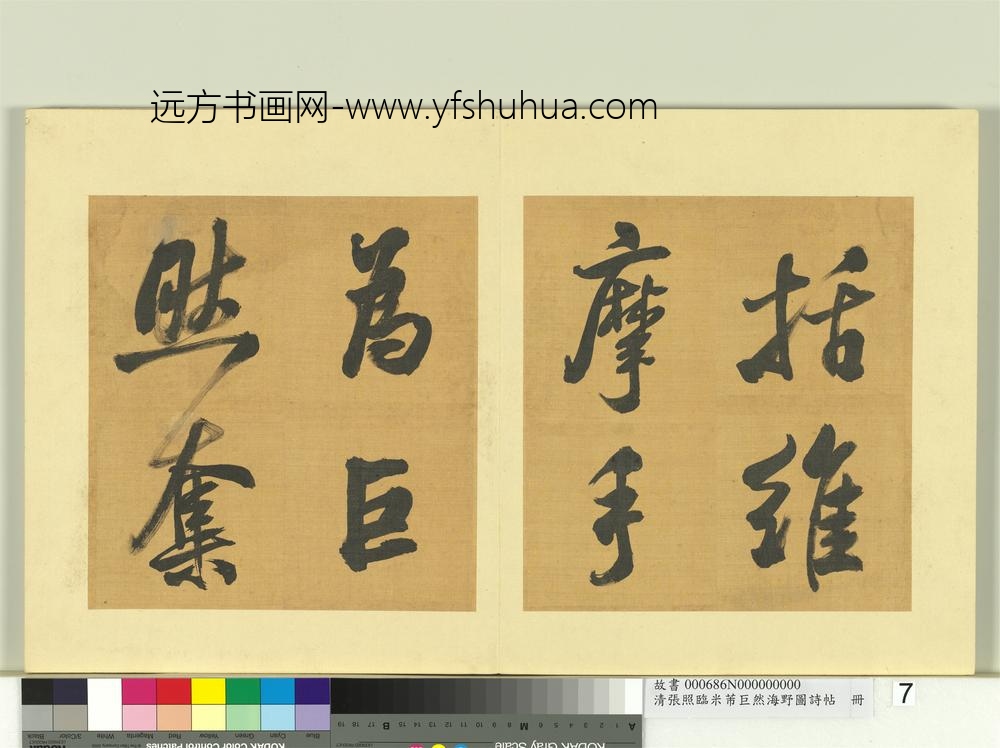 远方书画网-www.yfshuhua.com
括维
摩手
為巨
然奪
故書 000686N000000000
清張照臨米芾巨然海野圖詩帖 冊
7
Blue
Cyan
Green
Yellow
Red
Magenta
White
3/Color
Black
KODAK Color Control Patches
KODAK Gray Scale
A 1 2 3 4 5 6 M 8 9 10 11 12 13 14 15 B 17 18 19